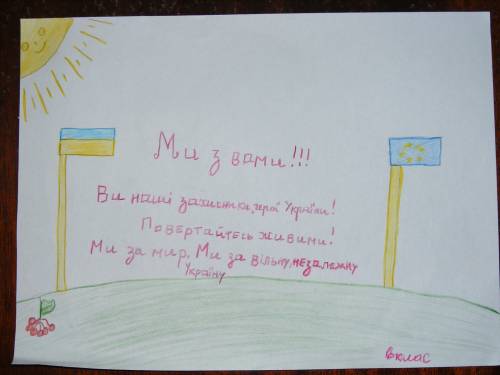 Ми з вами!!!
Ви наші захисники, герої України!
Повертайтесь живими!
Ми за мир. Ми за вільну, незалежну
Україну
6 клас